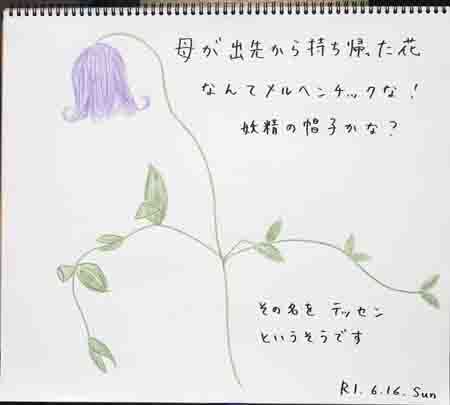 母が出先から持ち帰った花
なんてメルヘンチックな！
妖精の帽子かな？
その名を テッセン
というそうです
R1.6.16.Sun